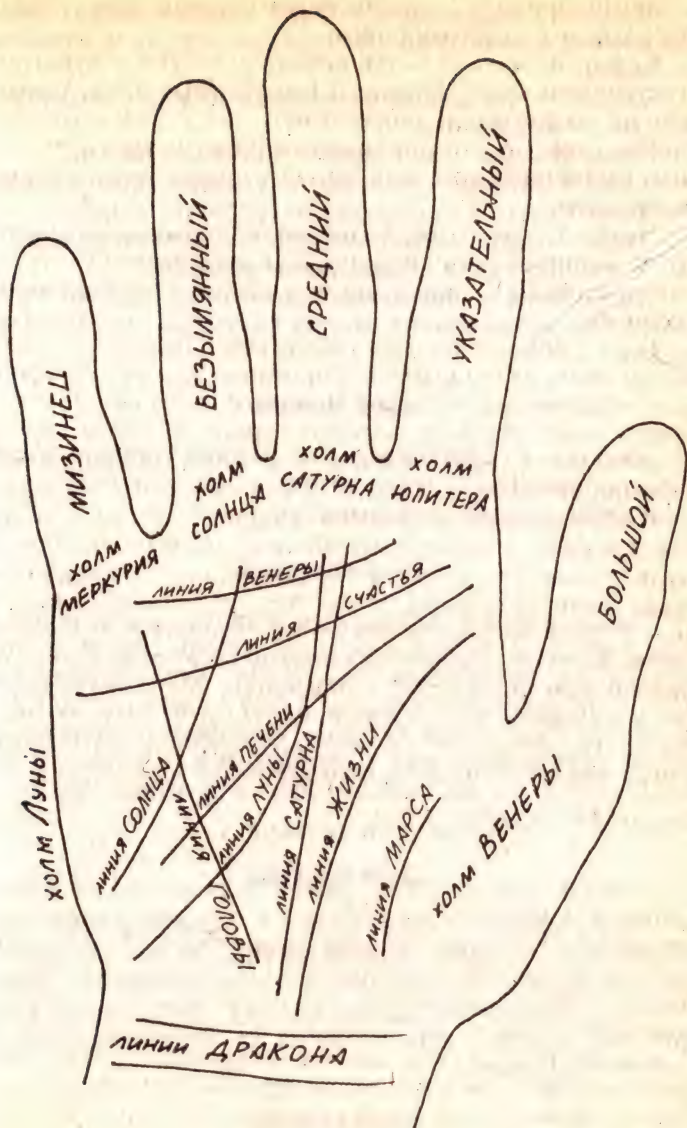 МИЗИНЕЦ
БЕЗЫМЯННЫЙ
СРЕДНИЙ
УКАЗАТЕЛЬНЫЙ
БОЛЬШОЙ
ХОЛМ
МЕРКУРИЯ
ХОЛМ
СОЛНЦА
ХОЛМ
САТУРНА
ХОЛМ
ЮПИТЕРА
ЛИНИЯ ВЕНЕРЫ
ЛИНИЯ СЧАСТЬЯ
ХОЛМ ЛУНЫ
ЛИНИЯ СОЛНЦА
ЛИНИЯ ГОЛОВЫ
ЛИНИЯ ПЕЧЕНИ
ЛИНИЯ ЛУНЫ
ЛИНИЯ САТУРНА
ЛИНИЯ ЖИЗНИ
ЛИНИЯ МАРСА
ХОЛМ ВЕНЕРЫ
ЛИНИИ ДРАКОНА